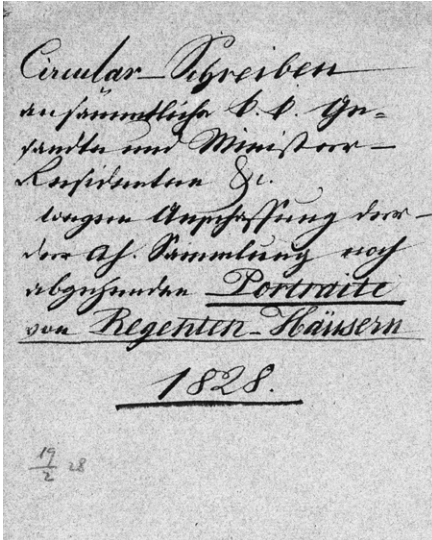 Circular-Schreiben
an sämmtliche k. k. Ge=
sandte und Minister-
Residenten &c.
wegen Anschaffung der-
der Ah. Sammlung noch
abgehenden Portraite
von Regenten-Häusern
1828.
19/2 28